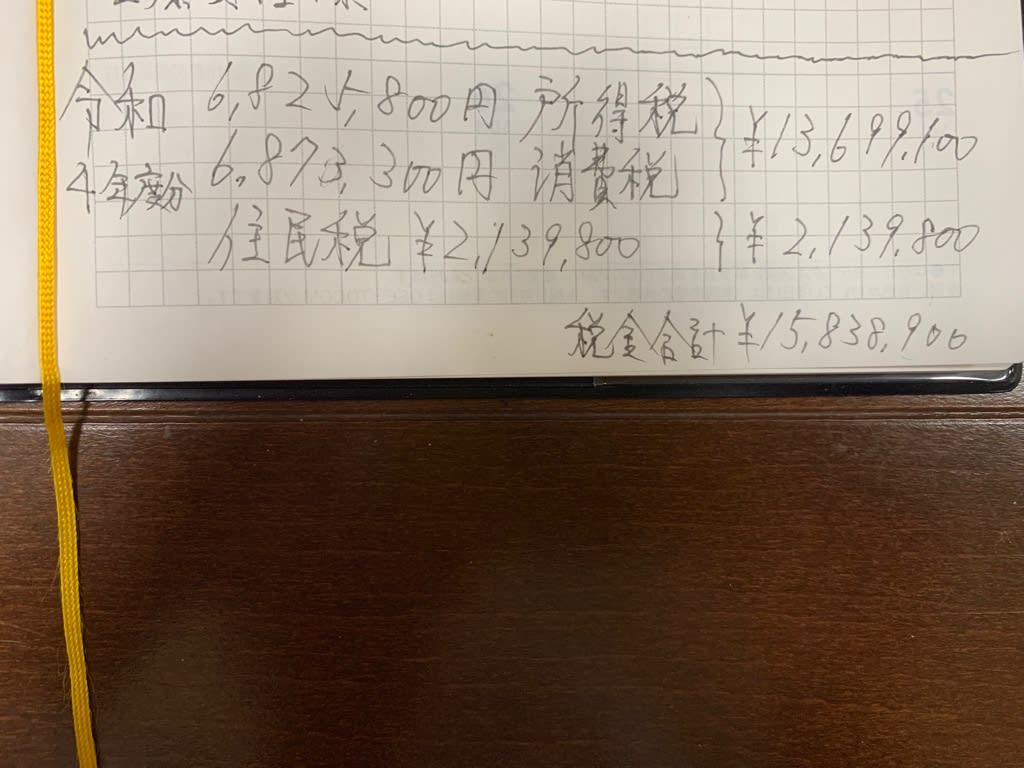 令和 6,825,800円 所得税 } ¥13,699,100
4年度分 6,873,300円 消費税
住民税 ¥2,139,800 } ¥2,139,800
税金合計 ¥15,838,900